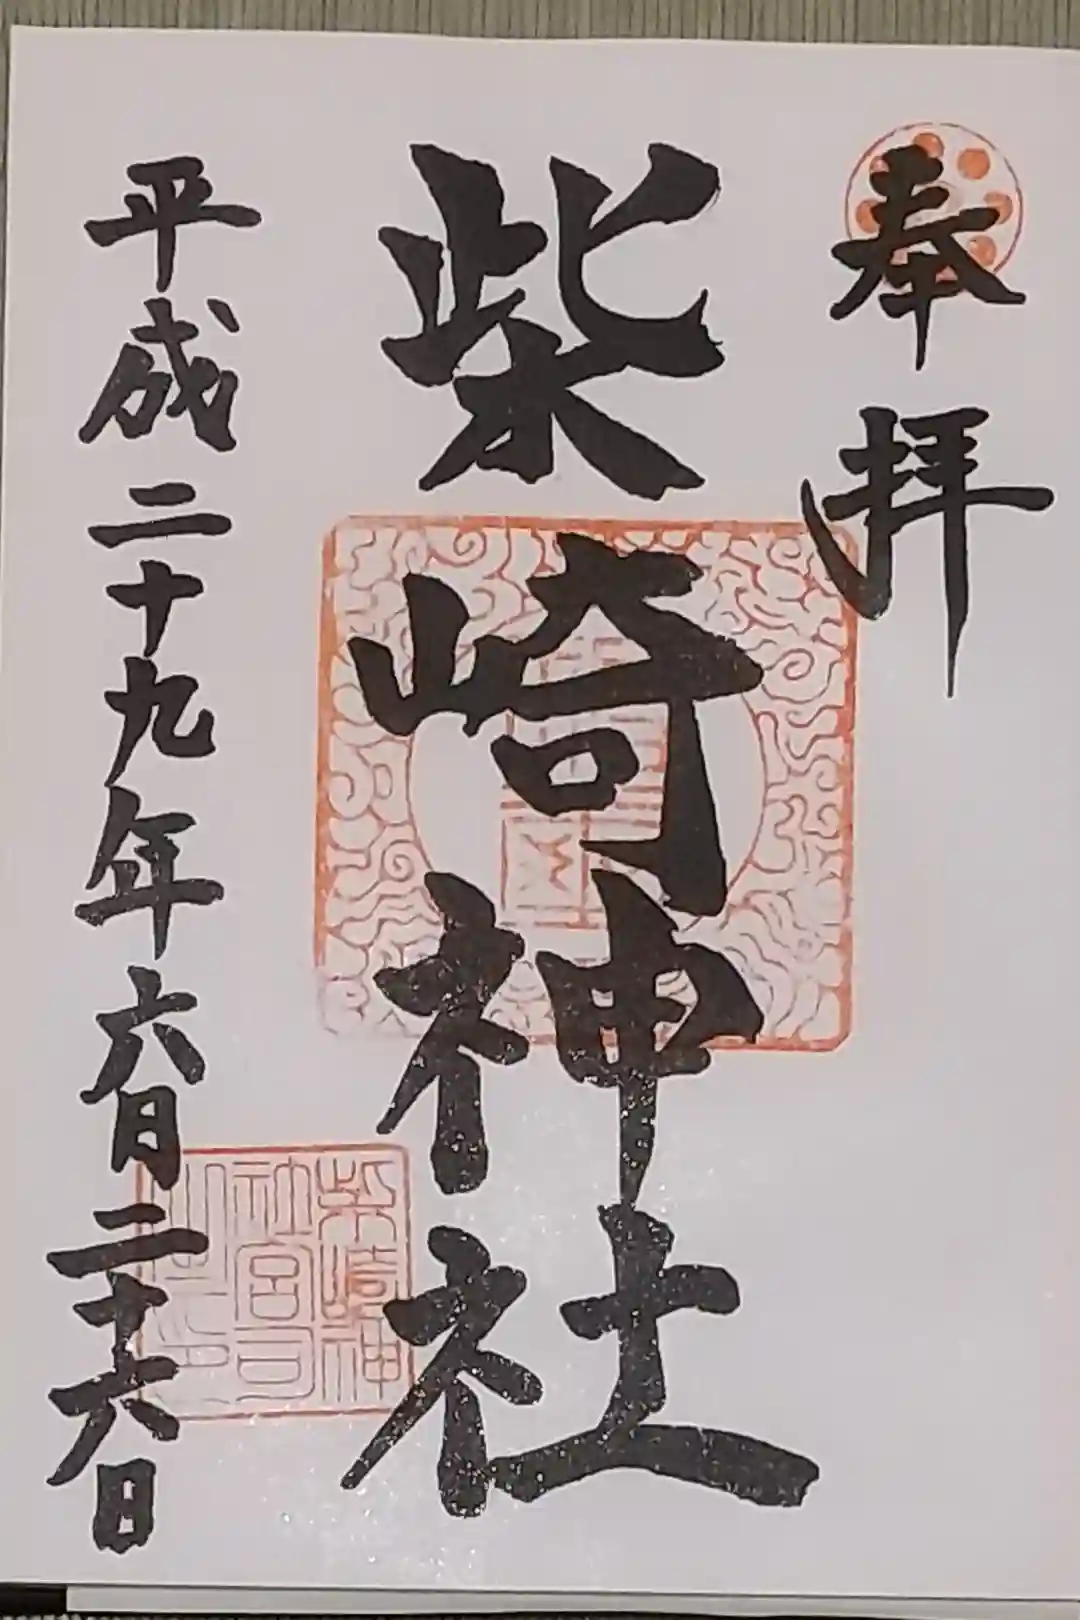 奉拝
柴崎神社
平成二十九年六月二十六日
柴崎神
社宮司
之印